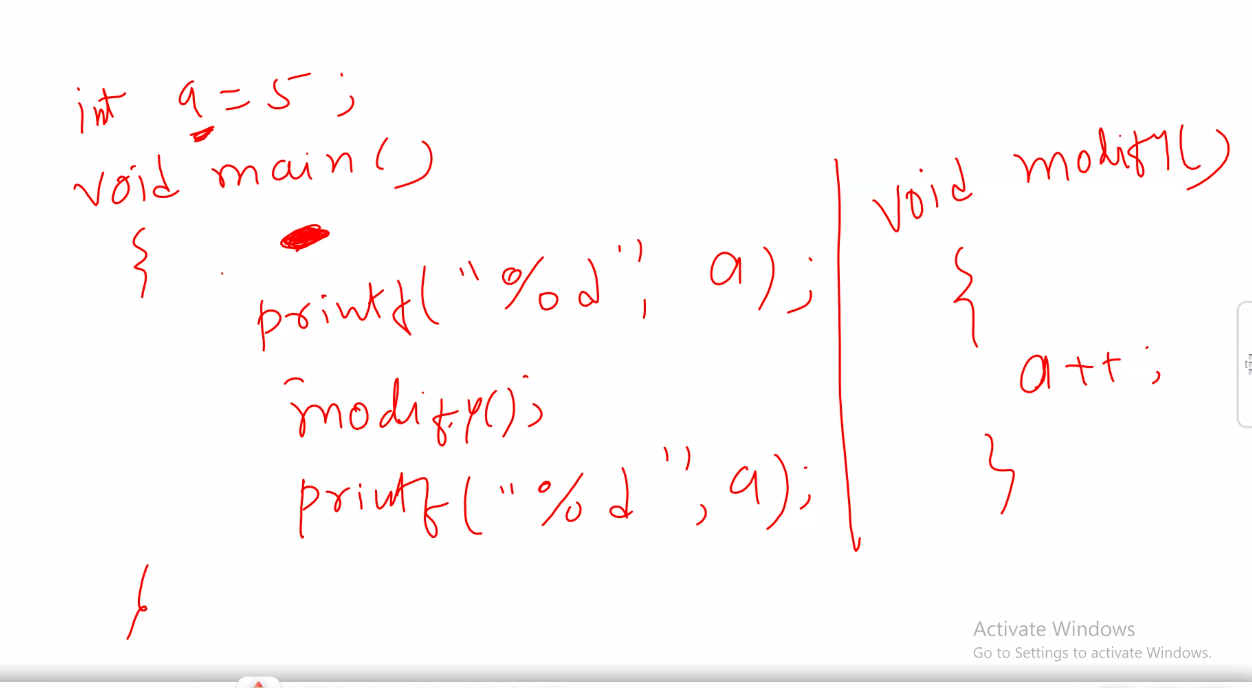 int a = 5 ;
void main ( )
{
printf( "%d", a);
modify();
printf( "%d", a);
}
void modify()
{
a++ ;
}
Activate Windows
Go to Settings to activate Windows.